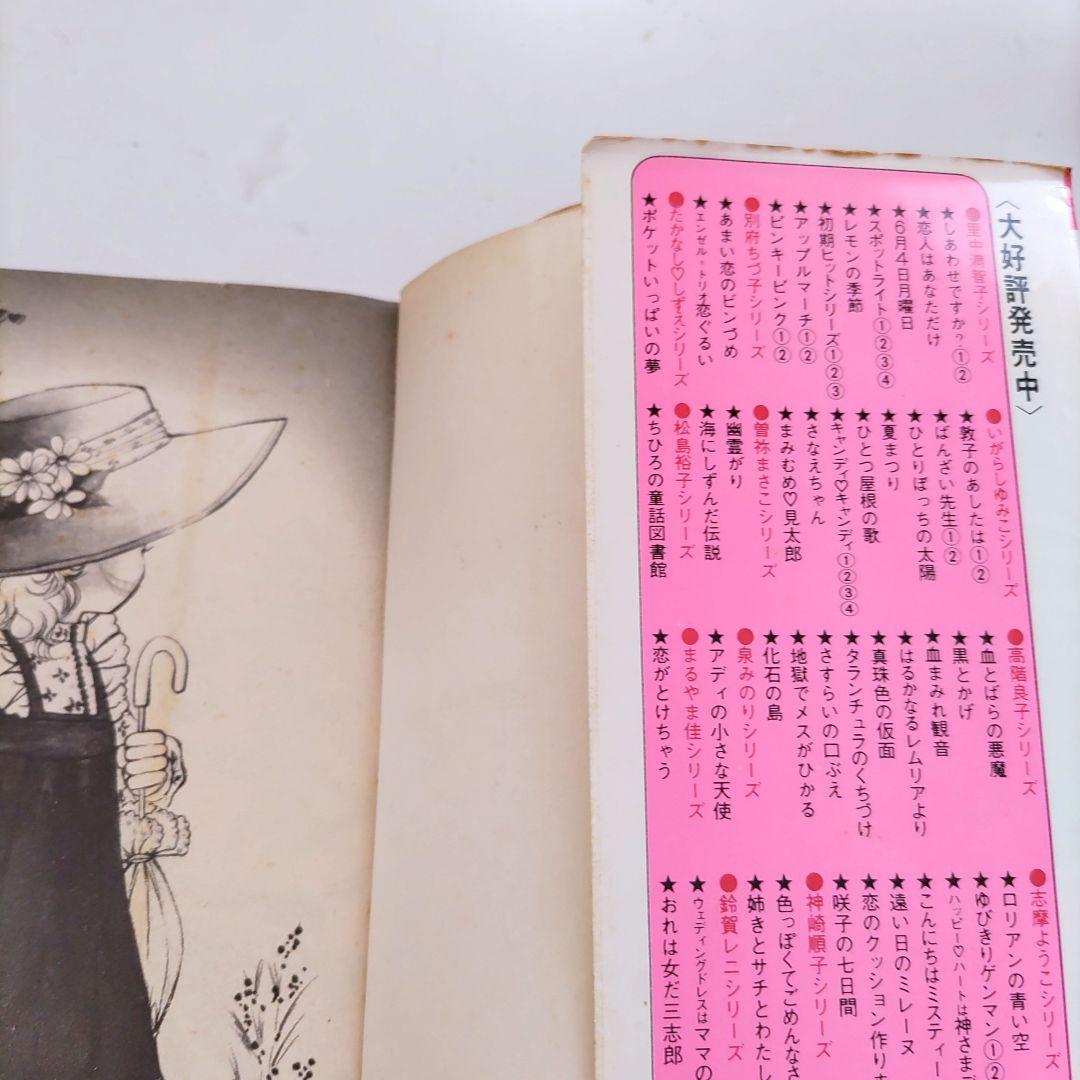 〈大好評発売中〉
●里中満智子シリーズ
★しあわせですか?①②
★恋人はあなただけ
★6月4日月曜日
★スポットライト①②③④
★レモンの季節
★初期ヒットシリーズ①②③
★アップルマーチ①②
★ピンキーピンク①②
●別府ちづ子シリーズ
★あまい恋のビンづめ
★エンゼル=トリオ恋ぐるい
●たかなし♡しずえシリーズ
★ポケットいっぱいの夢
●いがらしゆみこシリーズ
★敦子のあしたは①②
★ばんざい先生①②
★ひとりぼっちの太陽
★夏まつり
★ひとつ屋根の歌
★キャンディ♡キャンディ①②③④
★さなえちゃん
★まみむめ♡見太郎
●曽祢まさこシリーズ
★幽霊がり
★海にしずんだ伝説
●松島裕子シリーズ
★ちひろの童話図書館
●高階良子シリーズ
★血とばらの悪魔
★黒とかげ
★血まみれ観音
★はるかなるレムリアより
★真珠色の仮面
★タランチュラのくちづけ
★さすらいの口ぶえ
★地獄でメスがひかる
★化石の島
●泉みのりシリーズ
★アディの小さな天使
●まるやま佳シリーズ
★恋がとけちゃう
●志摩ようこシリーズ
★ロリアンの青い空
★ゆびきりゲンマン①②
★ハッピー♡ハートは神さま
★こんにちはミスティー
★遠い日のミレーヌ
★恋のクッション作り
★咲子の七日間
●神崎順子シリーズ
★色っぽくてごめんなさ
★姉きとサチとわたし
●鈴賀レニシリーズ
★ウェディングドレスはママの
★おれは女だ三志郎